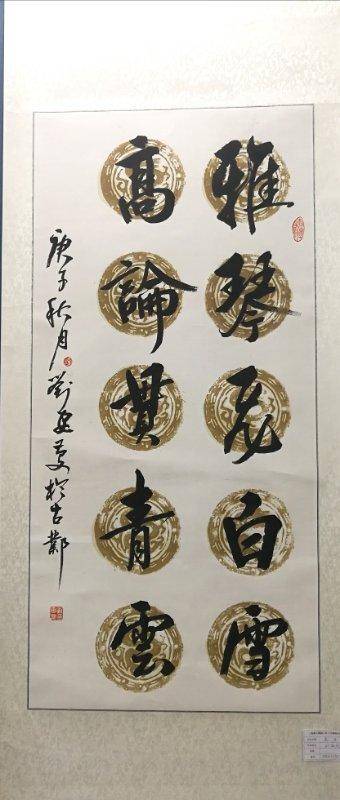 雅琴飛白雪
高論貫青雲
庚子秋月劉於古鄴